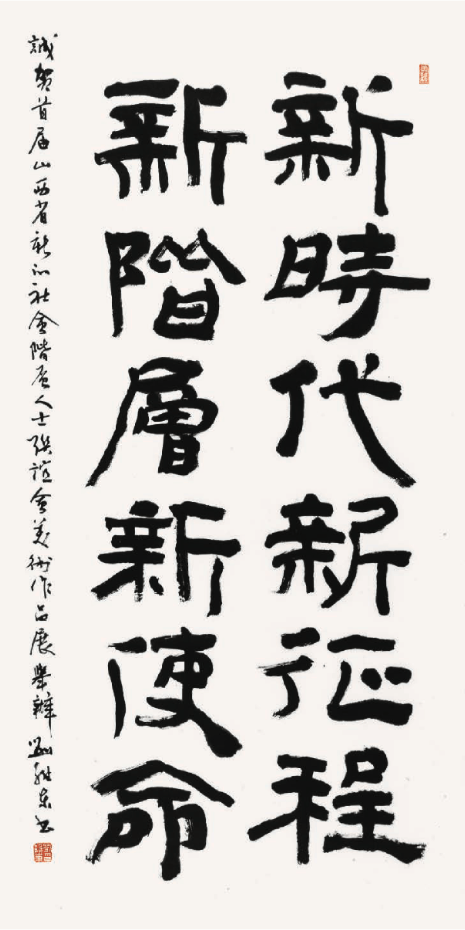 新時代新征程
新階層新使命
誠賀首届山西省新的社會階層人士联谊會美術作品展舉辦 東书